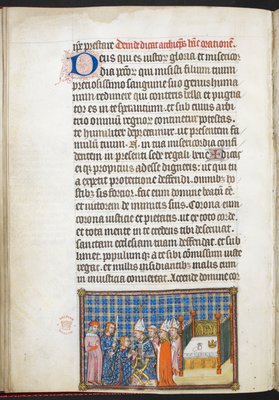 Deinde dicat archieps hanc orationem.
Deus qui es iustor gloria et misericor
dia peccator qui misisti filium tuum
preciosissimo sanguine suo genus huma
num redimere qui conteris bella et pugnator
es in te sperantium. et sub cuius arbi
trio omnium regnorum continetur potestas.
te humiliter deprecamur. ut presentem fa
mulum tuum .N. in tua misericordia confi
dentem in presenti sede regali benedicas
ei que propicius adesse digneris. ut qui tu
a expetit protectione defendi. omnibus ho
stibus sis fortior. fac eum domine beatum esse
et victorem de inimicis suis. Corona eum
corona iusticie et pietatis. ut ex toto corde.
et tota mente in te credens tibi deseruiat.
sanctam ecclesiam tuam defendat. et sub
limet. populumque a te sibi commissum iuste
regat. et nullus insidiantibus malis eum
in iniusticia conuertat. Accende domine cor